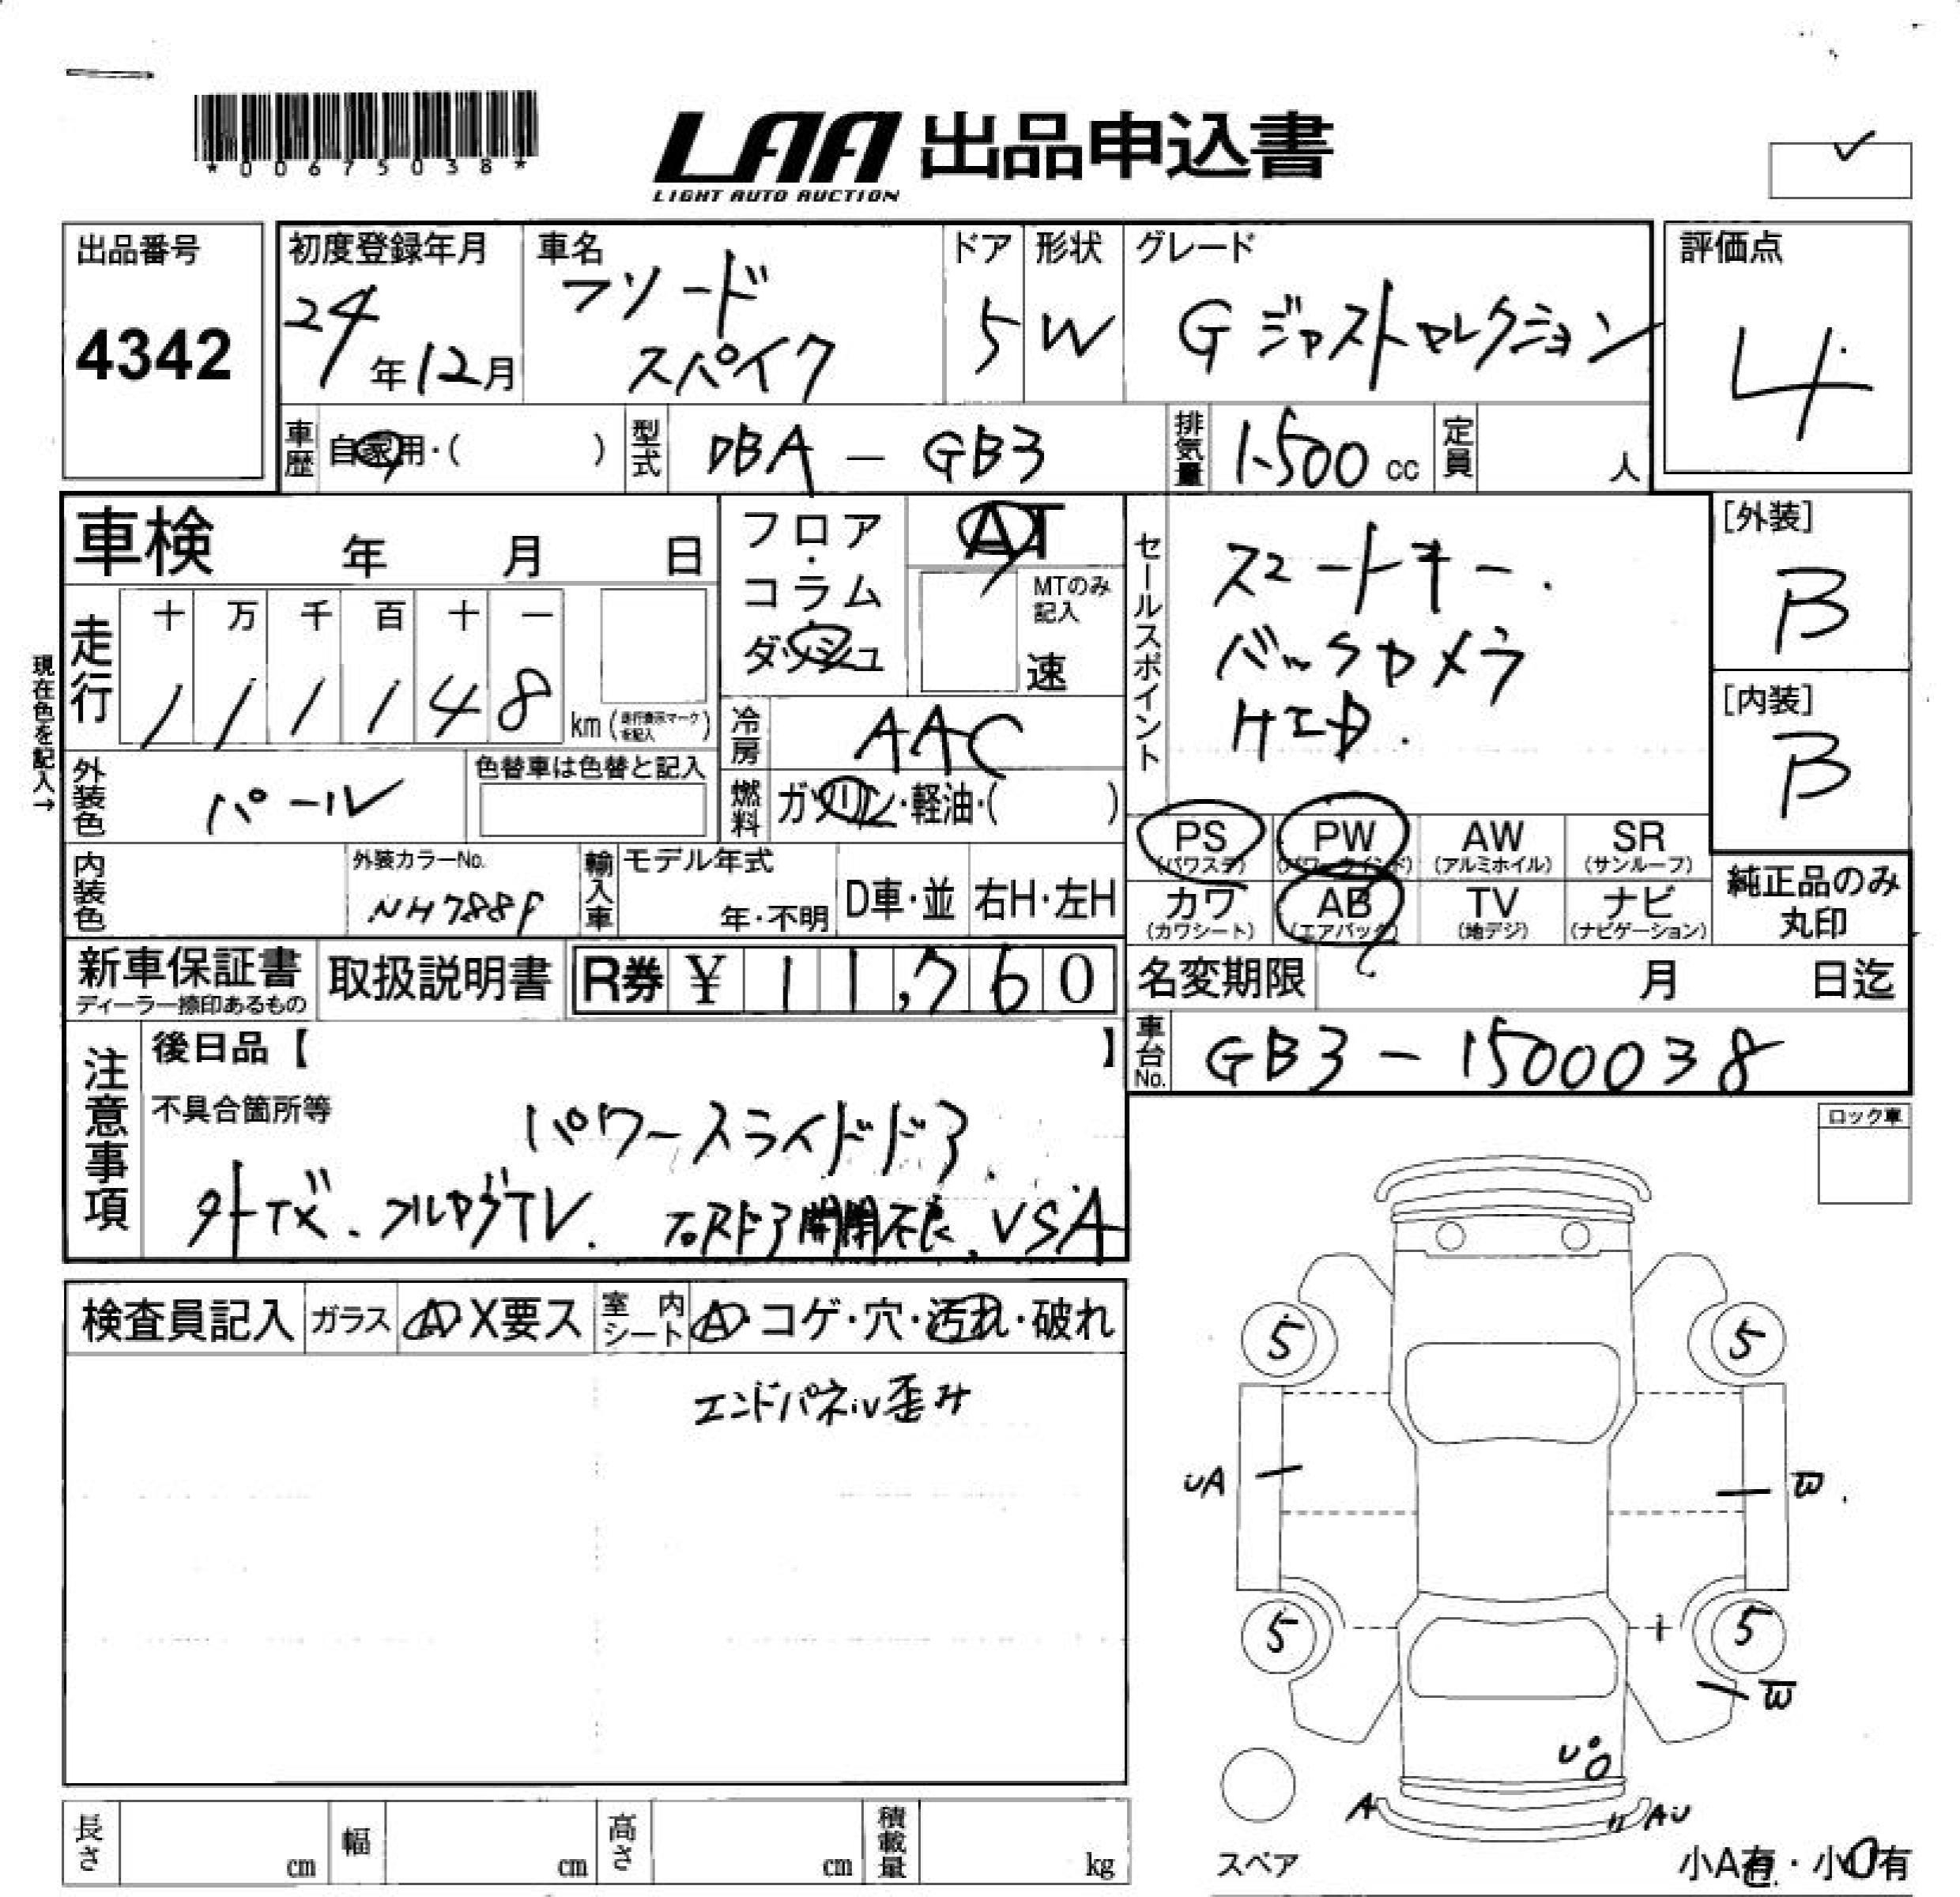 *00675038*
LAA 出品申込書
LIGHT AUTO AUCTION
出品番号
4342
初度登録年月
24年12月
車名
フリード
スパイク
ドア
5
形状
W
グレード
G ジャストセレクション
評価点
4
車歴 自家用・( )
型式 DBA - GB3
排気量 1500 cc
定員 人
車検 年 月 日
フロア・コラム
ダッシュ
AT
MTのみ記入
速
セールスポイント
スマートキー.
バックカメラ
HID.
[外装]
B
[内装]
B
現在色を記入→
走行 十 万 千 百 十 一
111148 km (走行表示マークを記入)
冷房 AAC
外装色 パール
色替車は色替と記入
燃料 ガソリン・軽油・( )
PS (パワステ)
PW (パワーウインド)
AW (アルミホイル)
SR (サンルーフ)
カワ (カワシート)
AB (エアバック)
TV (地デジ)
ナビ (ナビゲーション)
純正品のみ
丸印
内装色
外装カラーNo.
NH788P
輸入車
モデル年式
年・不明
D車・並
右H・左H
新車保証書
ディーラー捺印あるもの
取扱説明書
R券 ¥ 11,760
名変期限 月 日迄
車台No. GB3-1500038
注意事項
後日品【 】
不具合箇所等
パワースライドドア.
外TX. フルセグTV. 右スドア開閉不良. VSA
ロック車
検査員記入 ガラス A X要ス
室内シート A・コゲ・穴・汚れ・破れ
エンドパネル歪み
5
5
UA
W
5
5
W
U
A
AU
スペア
小A有・小U有
長さ cm
幅 cm
高さ cm
積載量 kg